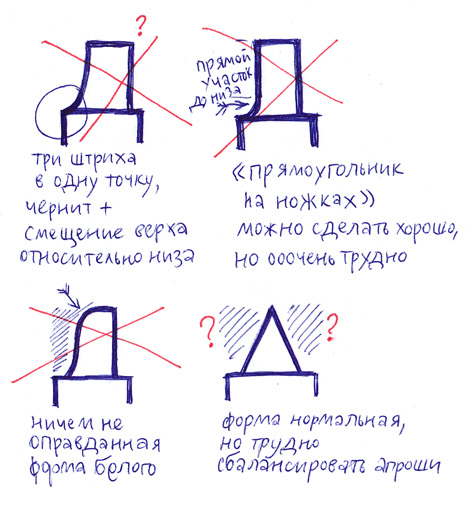 ?
три штриха
в одну точку,
чернит +
смещение верха
относительно низа
прямой
участок
до низа
«прямоугольник
на ножках»
можно сделать хорошо,
но ооочень трудно
ничем не
оправданная
форма белого
? ?
форма нормальная,
но трудно
сбалансировать апроши